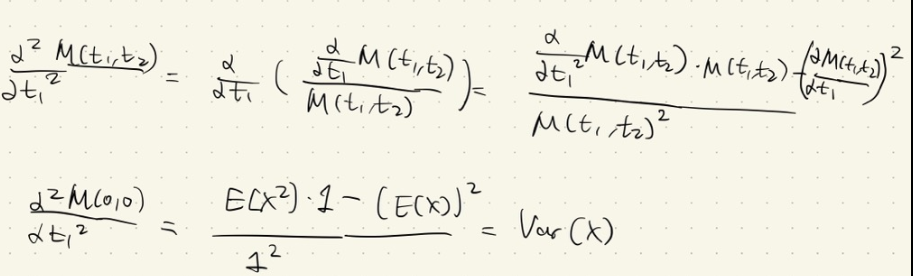 ∂² M(t₁,t₂) / ∂t₁² = ∂/∂t₁ ( ∂/∂t₁ M(t₁,t₂) / M(t₁,t₂) ) = ( ∂/∂t₁² M(t₁,t₂) · M(t₁,t₂) − (∂M(t₁,t₂)/∂t₁)² ) / M(t₁,t₂)²
∂² M(0,0) / ∂t₁² = ( E(X²) · 1 − (E(X))² ) / 1² = Var(X)